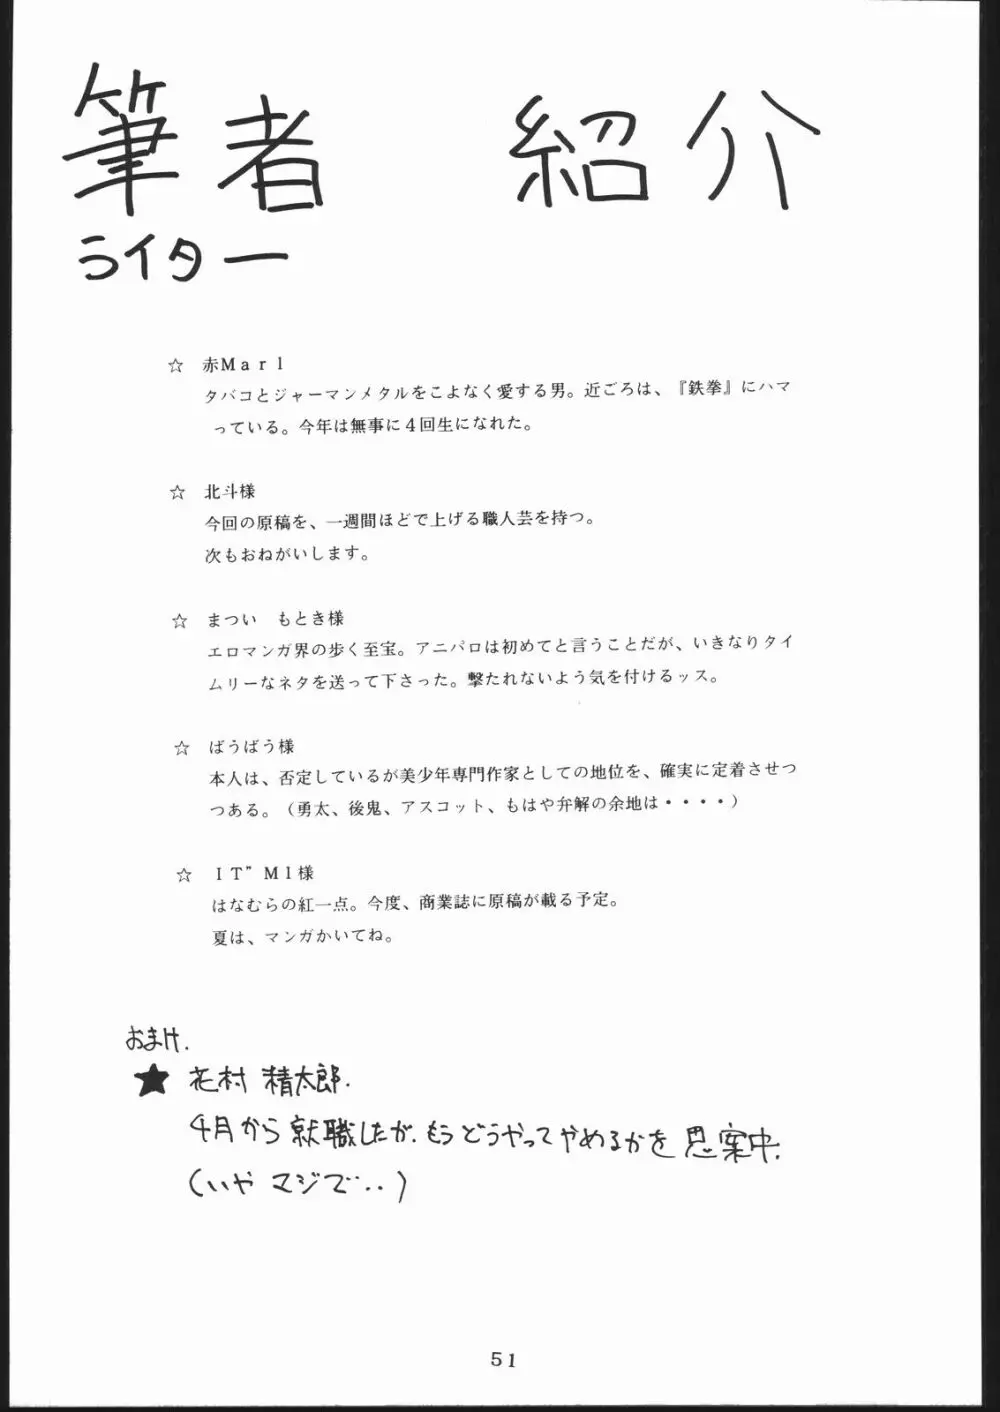 筆者　紹介
ライター
☆　赤Ｍａｒｌ
タバコとジャーマンメタルをこよなく愛する男。近ごろは、『鉄拳』にハマ
っている。今年は無事に４回生になれた。
☆　北斗様
今回の原稿を、一週間ほどで上げる職人芸を持つ。
次もおねがいします。
☆　まつい　もとき様
エロマンガ界の歩く至宝。アニパロは初めてと言うことだが、いきなりタイ
ムリーなネタを送って下さった。撃たれないよう気を付けるッス。
☆　ばうばう様
本人は、否定しているが美少年専門作家としての地位を、確実に定着させつ
つある。（勇太、後鬼、アスコット、もはや弁解の余地は・・・・）
☆　ＩＴ”Ｍ１様
はなむらの紅一点。今度、商業誌に原稿が載る予定。
夏は、マンガかいてね。
おまけ.
★ 花村 精太郎.
4月から就職したが、もうどうやってやめるかを思案中.
（いや マジで‥‥）
51